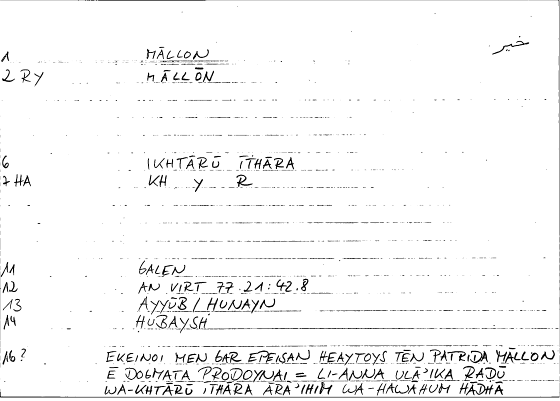 خير
1 MĀLLON
2 RY MĀLLŌN
6 IKHTĀRŪ ĪTHĀRA
7 HA KH Y R
11 GALEN
12 AN VIRT 77.21:42.8
13 AYYŪB / HUNAYN
14 HUBAYSH
16? EKEINOI MEN GAR EPEISAN HEAYTOYS TĒN PATRIDA MĀLLON
Ē DOGMATA PRODOYNAI = LI-ANNA ULĀ'IKA RADŪ
WA-KHTĀRŪ ĪTHĀRA ĀRĀ'IHIM WA-HAWĀHUM HĀDHĀ